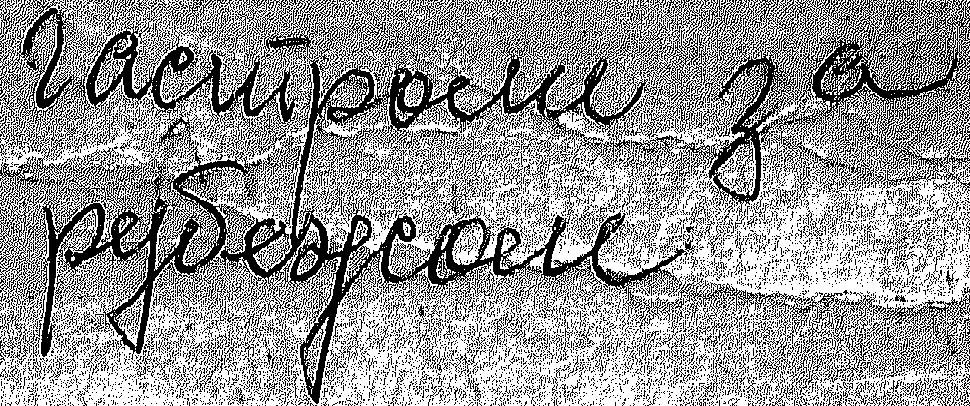 Гастроли за
рубежом: